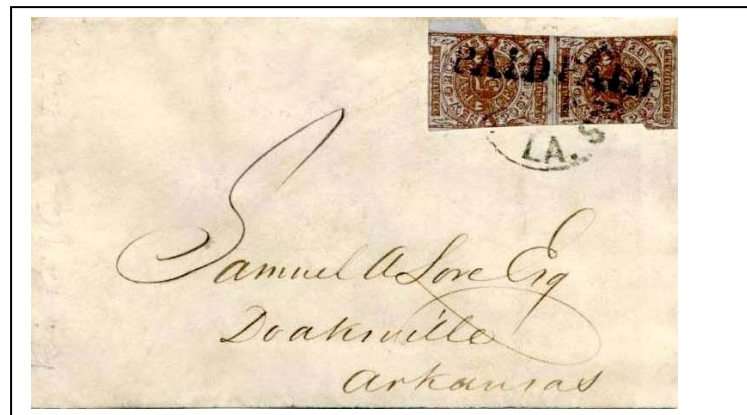 PAID PAID
LA.
Samuel A Love Esq
Doaksville
Arkansas